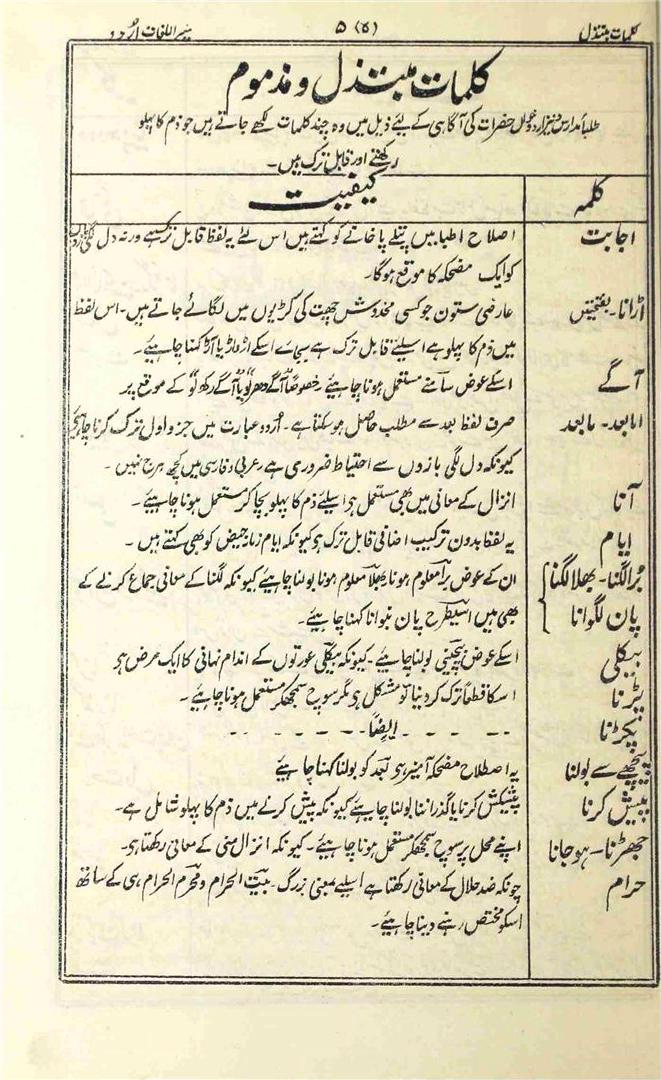 کلمات مبتذل (۵) ۵ میسر اللغات اُردو
کلمات مبتذل و مذموم
طلبا مدارس و نیز اردو خوان حضرات کی آگاہی کے لیٔے ذیل میں وہ چند کلمات لکھے جاتے ہیں جو ذم کا پہلو
رکھتے اور قابل ترک ہیں۔
کلمہ کیفیت
اجابت اصلاح اطبا میں پتلے پاخانے کو کہتے ہیں اس لئے یہ لفظ قابل ترک ہے ورنہ دل لگی بازوں
کو ایک مضحکہ کا موقع ہوگا۔
اڑانا۔ بفتحیتں عارضی ستون جو کسی مخدوش چھت کی کڑیوں میں لگائے جاتے ہیں۔ اس لفظ
میں ذم کا پہلو ہے اسلیئے قابل ترک ہے بجاے اسکے اڑواڑ یا آڑ کہنا چاہیے۔
آگے اسکے عوض سامنے مستعمل ہونا چاہیے خصوصاً آگے دھر لو یا آگے رکھ لو کے موقع پر
امابعد۔ مابعد صرف لفظ بعد سے مطلب حاصل ہو سکتا ہے۔ اُردو عبارت میں جزو اول ترک کرنا چاہیے
کیونکہ دل لگی بازوں سے احتیاط ضروری ہے عربی و فارسی میں کچھ ہرج نہیں۔
آنا انزال کے معانی میں بھی مستعمل ہی اسلیے ذم کا پہلو بچا کر مستعمل ہونا چاہیے۔
ایام یہ لفظ بدون ترکیب اضافی قابل ترک ہی کیونکہ ایام زمانہ حیض کو بھی کہتے ہیں۔
بُرا لگنا۔ بھلا لگنا ان کے عوض برا معلوم ہونا۔ بھلا معلوم ہونا بولنا چاہیے کیونکہ لگنا کے معانی جماع کرنے کے
پان لگوانا بھی ہیں اسیطرح پان بنوانا کہنا چاہیے۔
بیکلی اسکے عوض بیچینی بولنا چاہیے۔ کیونکہ بیکلی عورتوں کے اندام نہانی کا ایک مرض ہی
پڑنا اسکا قطعاً ترک کر دینا تو مشکل ہی مگر سوچ سمجھکر مستعمل ہونا چاہیے۔
پکڑنا - - - - ایضاً - - - - -
پیچھے سے بولنا یہ اصطلاح مضحکہ آمیز ہی بعد کو بولنا کہنا چاہیے
پیش کرنا پیشکش کرنا یا گذراننا بولنا چاہیے کیونکہ پیش کرنے میں ذم کا پہلو شامل ہے۔
جھڑنا۔ ہو جانا اپنے محل پر سوچ سمجھکر مستعمل ہونا چاہیے۔ کیونکہ انزال منی کے معانی رکھتا ہی۔
حرام چونکہ ضد حلال کے معانی رکھتا ہے اسلیے بمعنی بزرگ۔ بیت الحرام و محرم الحرام ہی کے ساتھ
اسکو مختص رہنے دینا چاہیے۔